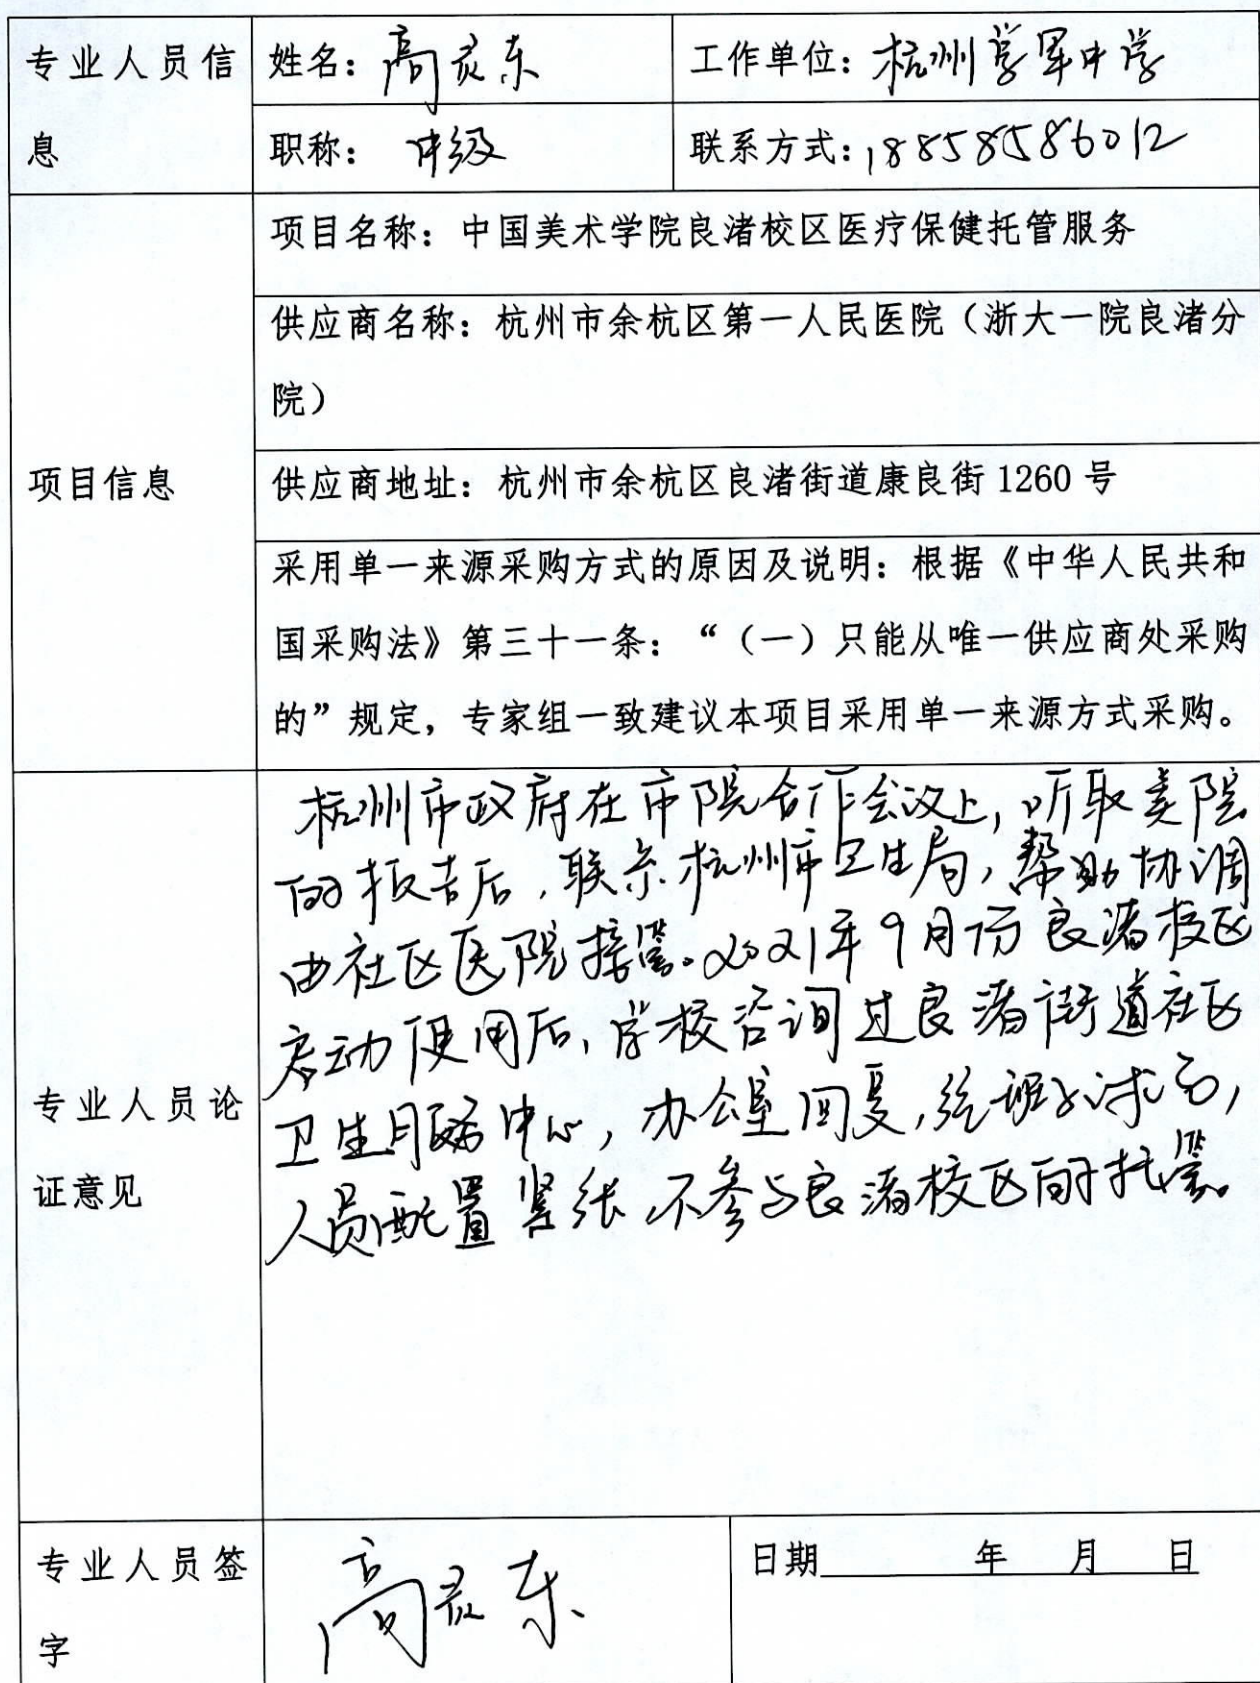 专业人员信息
姓名：高灵东
工作单位：杭州学军中学
职称：中级
联系方式：18858586012
项目信息
项目名称：中国美术学院良渚校区医疗保健托管服务
供应商名称：杭州市余杭区第一人民医院（浙大一院良渚分
院）
供应商地址：杭州市余杭区良渚街道康良街1260号
采用单一来源采购方式的原因及说明：根据《中华人民共和
国采购法》第三十一条：“（一）只能从唯一供应商处采购
的”规定，专家组一致建议本项目采用单一来源方式采购。
专业人员论
证意见
杭州市政府在市院合作会议上，听取美院
的报告后，联系杭州市卫生局，帮助协调
由社区医院接管。2021年9月份良渚校区
启动使用后，学校咨询过良渚街道社区
卫生服务中心，办公室回复，经班子讨论，
人员配置紧张 不参与良渚校区的托管。
专业人员签
字
高灵东
日期 年 月 日